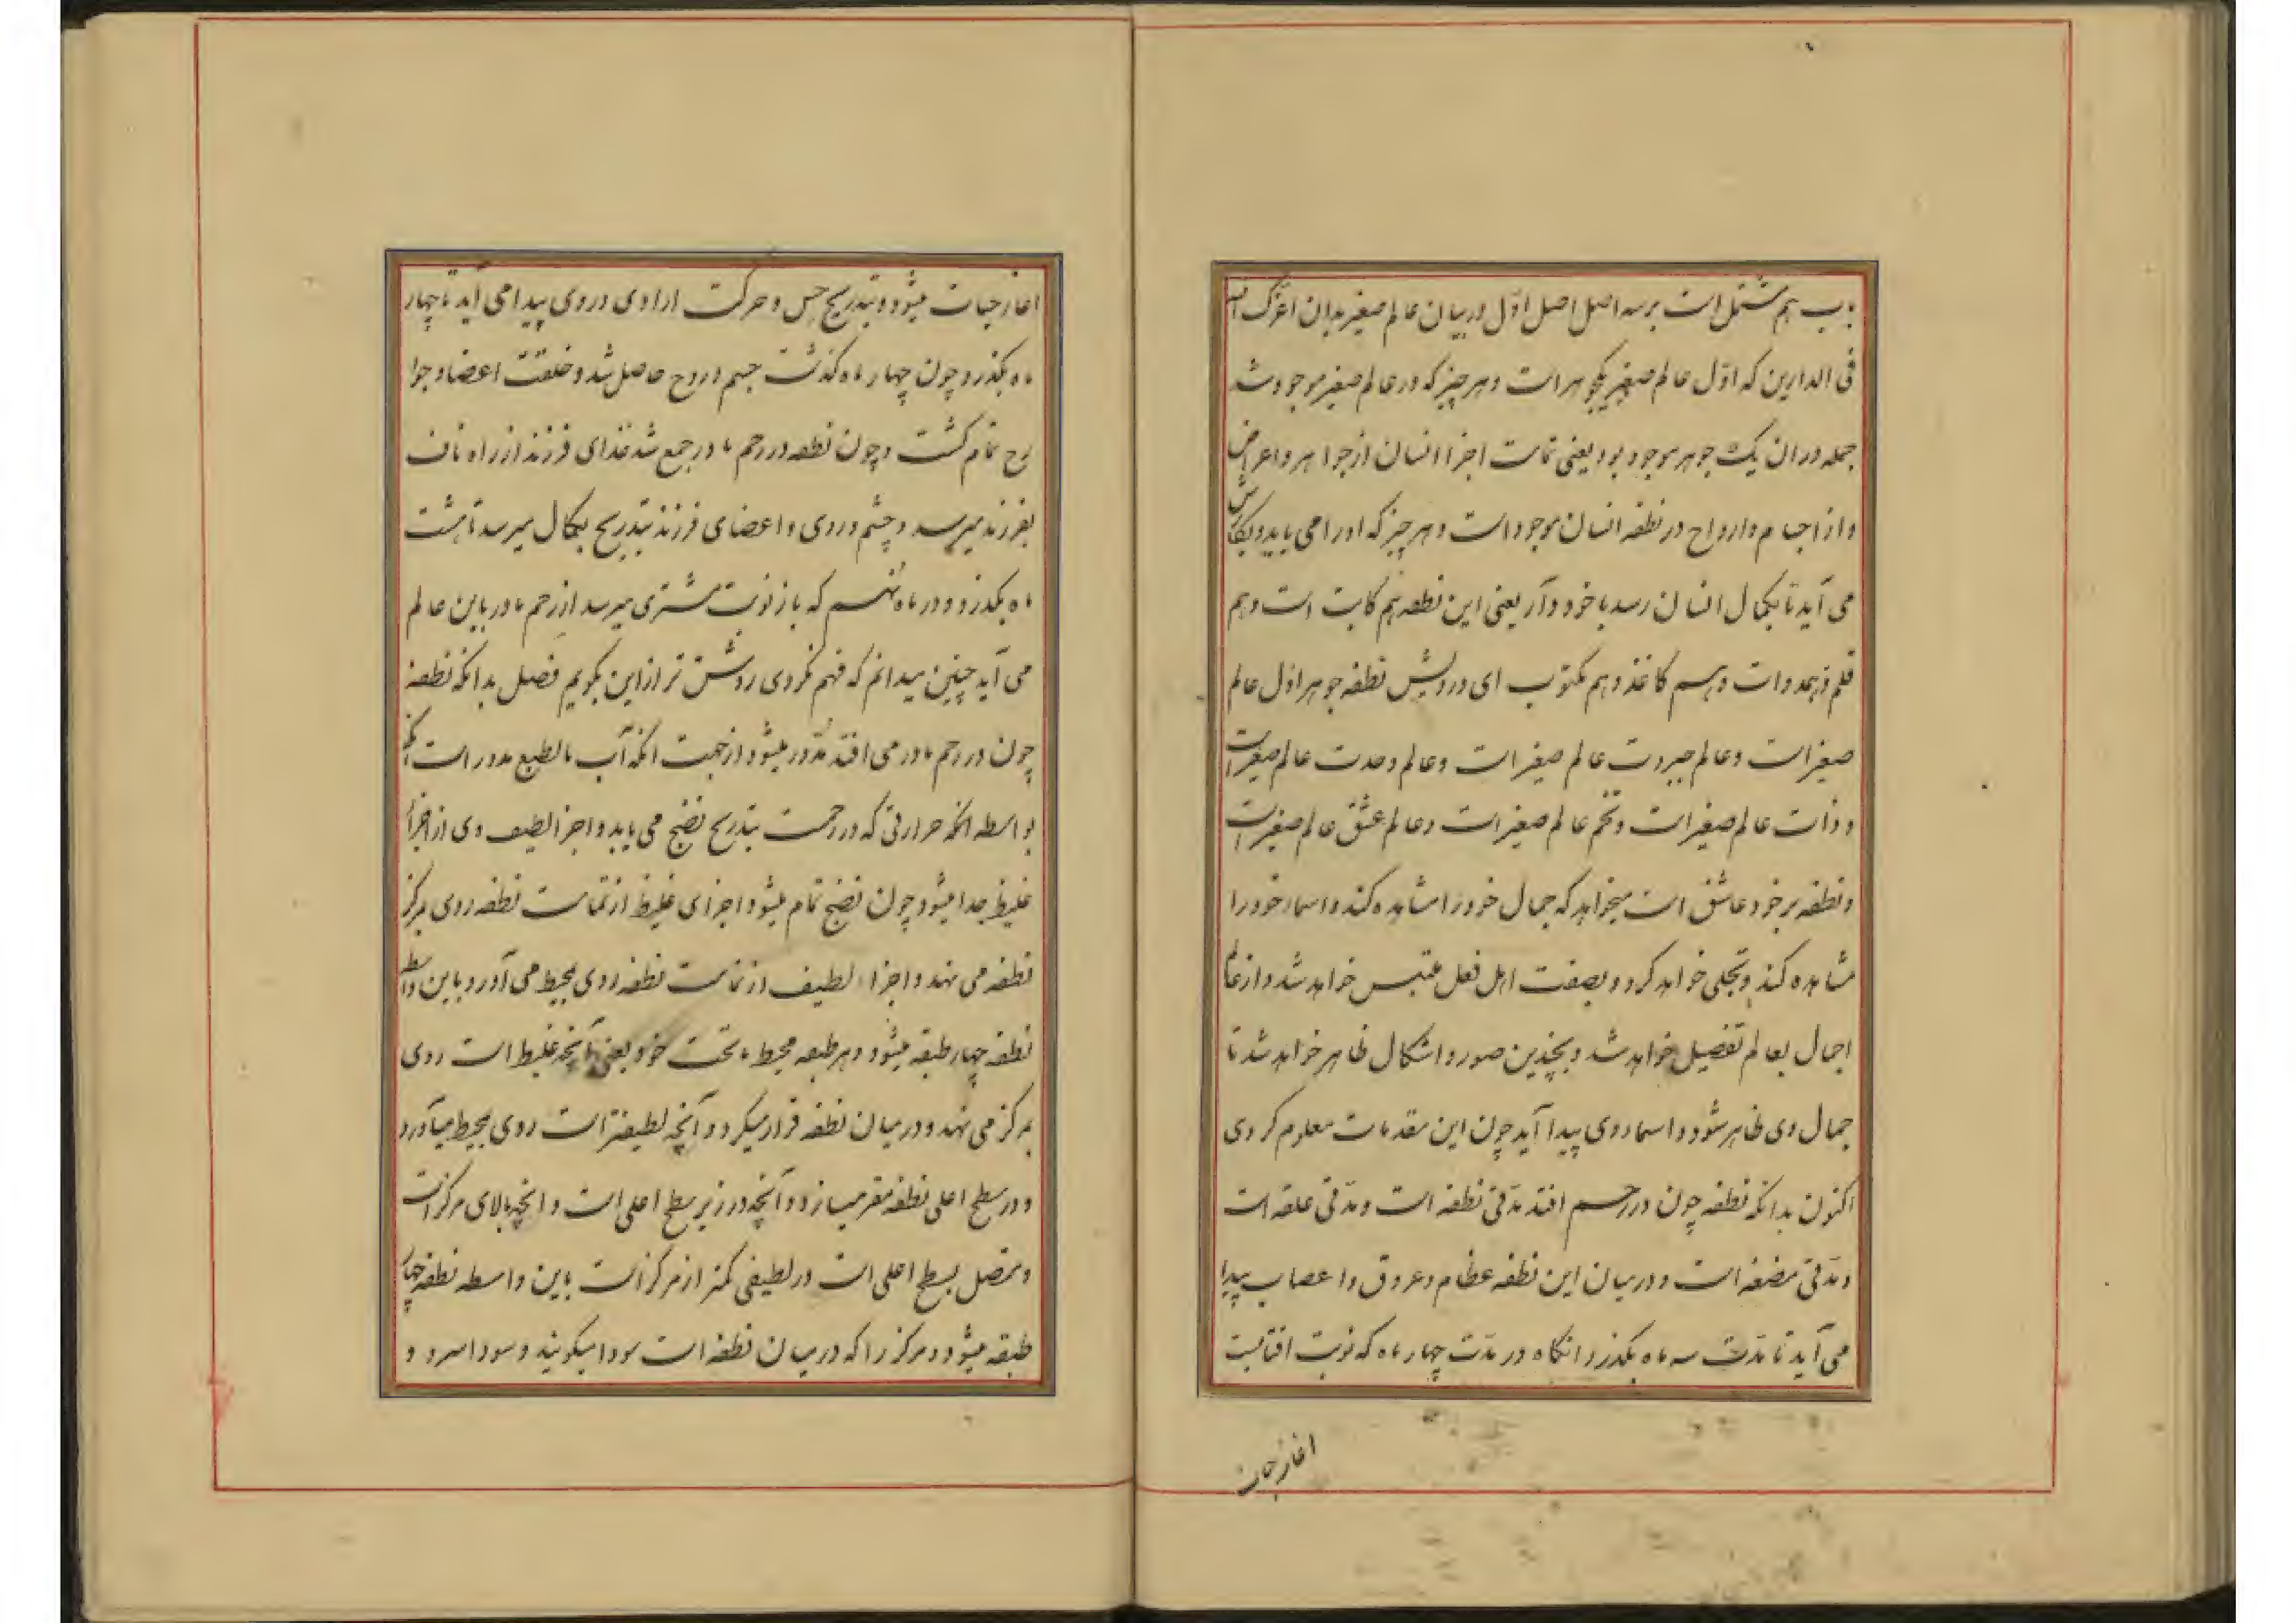 باب هم مشتمل است بر سه اصل اصل اوّل در بیان عالم صغیر بدان اعزک الله
فی الدارین که اوّل عالم صغیر یکجوهر است و هر چیز که در عالم صغیر موجود شد
جمله در ان یک جوهر موجود بود یعنی تمامت اجزا انسان از جواهر و اعراض
و از اجسام و ارواح در نطفه انسان موجود است و هر چیز که او را می باید و بکارش
می آید تا بکمال انسان رسد با خود دارد یعنی این نطفه هم کاتب است و هم
قلم و هم دوات و هم کاغذ و هم مکتوب ای درویش نطفه جوهر اوّل عالم
صغیر است و عالم جبروت عالم صغیر است و عالم وحدت عالم صغیر است
و ذات عالم صغیر است و تخم عالم صغیر است و عالم عشق عالم صغیر است
و نطفه بر خود عاشق است میخواهد که جمال خود را مشاهده کند و اسماء خود را
مشاهده کند و تجلی خواهد کرد و بصفت اهل فعل ملتبس خواهد شد و از عالم
اجمال بعالم تفصیل خواهد شد و بچندین صور و اشکال ظاهر خواهد شد تا
جمال وی ظاهر شود و اسماء وی پیدا آید چون این مقدمات معلوم کردی
اکنون بدانکه نطفه چون در رحم افتد مدّتی نطفه است و مدّتی علقه است
و مدّتی مضغه است و در میان این نطفه عظام و عروق و اعصاب پیدا
می آید تا مدّت سه ماه بکذرد و انکاه در مدّت چهار ماه که نوبت افتابست
اغاز حیات
اغاز حیات میشود و بتدریج حس و حرکت ارادی در وی پیدا می آید تا چهار
ماه بکذرد و چون چهار ماه کذشت جسم و روح حاصل شد و خلقت اعضا و جوا
رح تمام کشت و چون نطفه در رحم مادر جمع شد غذای فرزند از راه ناف
بفرزند میرسد و چشم و روی و اعضای فرزند بتدریج بکمال میرسد تا هشت
ماه بکذرد و در ماه نهم که باز نوبت مشتری میرسد از رحم مادر باین عالم
می آید چنین میدانم که فهم نکردی روشن تر از این بکویم فصل بدانکه نطفه
چون در رحم مادر می افتد مدّور میشود از جهت انکه آب بالطبع مدور است انکه
بواسطه انکه حرارتی که در رحمست بتدریج نضج می یابد و اجزا لطیف وی از اجزاء
غلیظ جدا میشود چون نضج تمام میشود اجزای غلیظ از تمامت نطفه روی بمرکز
نطفه می نهد و اجزاء لطیف از تمامت نطفه روی بمحیط می آورد و باین واسطه
نطفه چهار طبقه میشود و هر طبقه محیط ماتحت خود یعنی آنچه غلیظ است روی
بمرکز می نهد و در میان نطفه قرار میکیرد و آنچه لطیفتر است روی بمحیط میآورد
و در سطح اعلی نطفه مقر میسازد و آنچه در زیر سطح اعلی است و انچه بالای مرکز است
و متصل بسطح اعلی است در لطیفی کمتر از مرکز است باین واسطه نطفه چهار
طبقه میشود و مرکز را که در میان نطفه است سودا میکویند و سودا سرد و